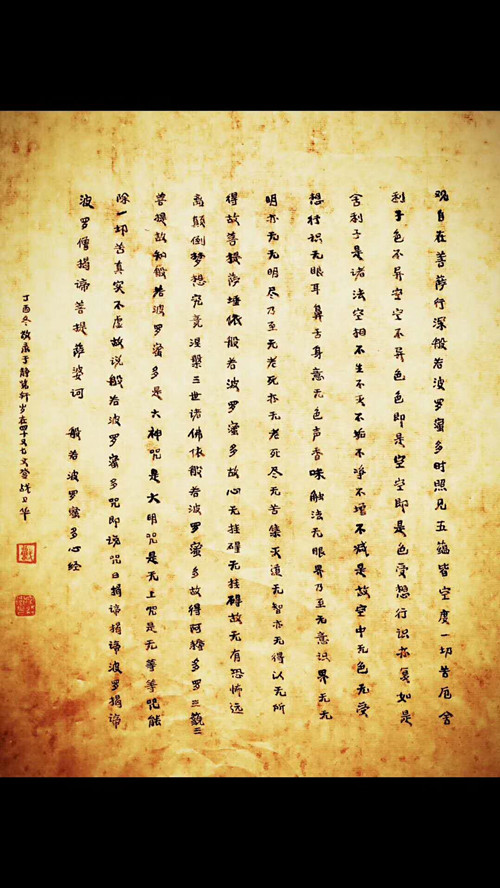 观自在菩萨行深般若波罗蜜多时照见五蕴皆空度一切苦厄舍
利子色不异空空不异色色即是空空即是色受想行识亦复如是
舍利子是诸法空相不生不灭不垢不净不增不减是故空中无色无受
想行识无眼耳鼻舌身意无色声香味触法无眼界乃至无意识界无无
明亦无无明尽乃至无老死亦无老死尽无苦集灭道无智亦无得以无所
得故菩提萨埵依般若波罗蜜多故心无挂碍无挂碍故无有恐怖远
离颠倒梦想究竟涅槃三世诸佛依般若波罗蜜多故得阿耨多罗三藐三
菩提故知般若波罗蜜多是大神咒是大明咒是无上咒是无等等咒能
除一切苦真实不虚故说般若波罗蜜多咒即说咒曰揭谛揭谛波罗揭谛
波罗僧揭谛菩提萨婆诃 般若波罗蜜多心经
丁酉冬敬录于静 轩岁在 战卫华